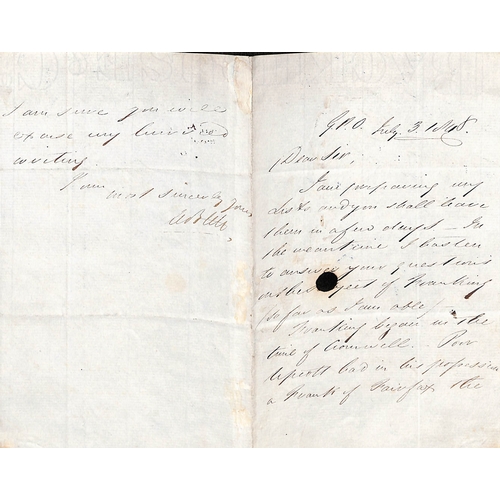 I am sure you will
excuse my hurried
writing.
I am
most sincerely yours
G.P.O. July 3.
Dear Sir,
I am preparing my
lists and you shall have
them in a few days — In
the mean time I hasten
to answer your questions
on the subject of Franking
so far as I am able.
Franking began in the
time of Cromwell. Poor
Upcott had in his possession
a Frank of Fairfax the